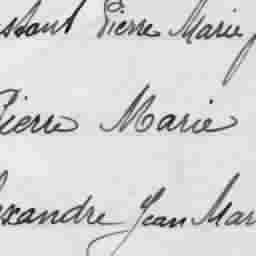 ssant Pierre Marie
Pierre Marie
exandre Jean Mar